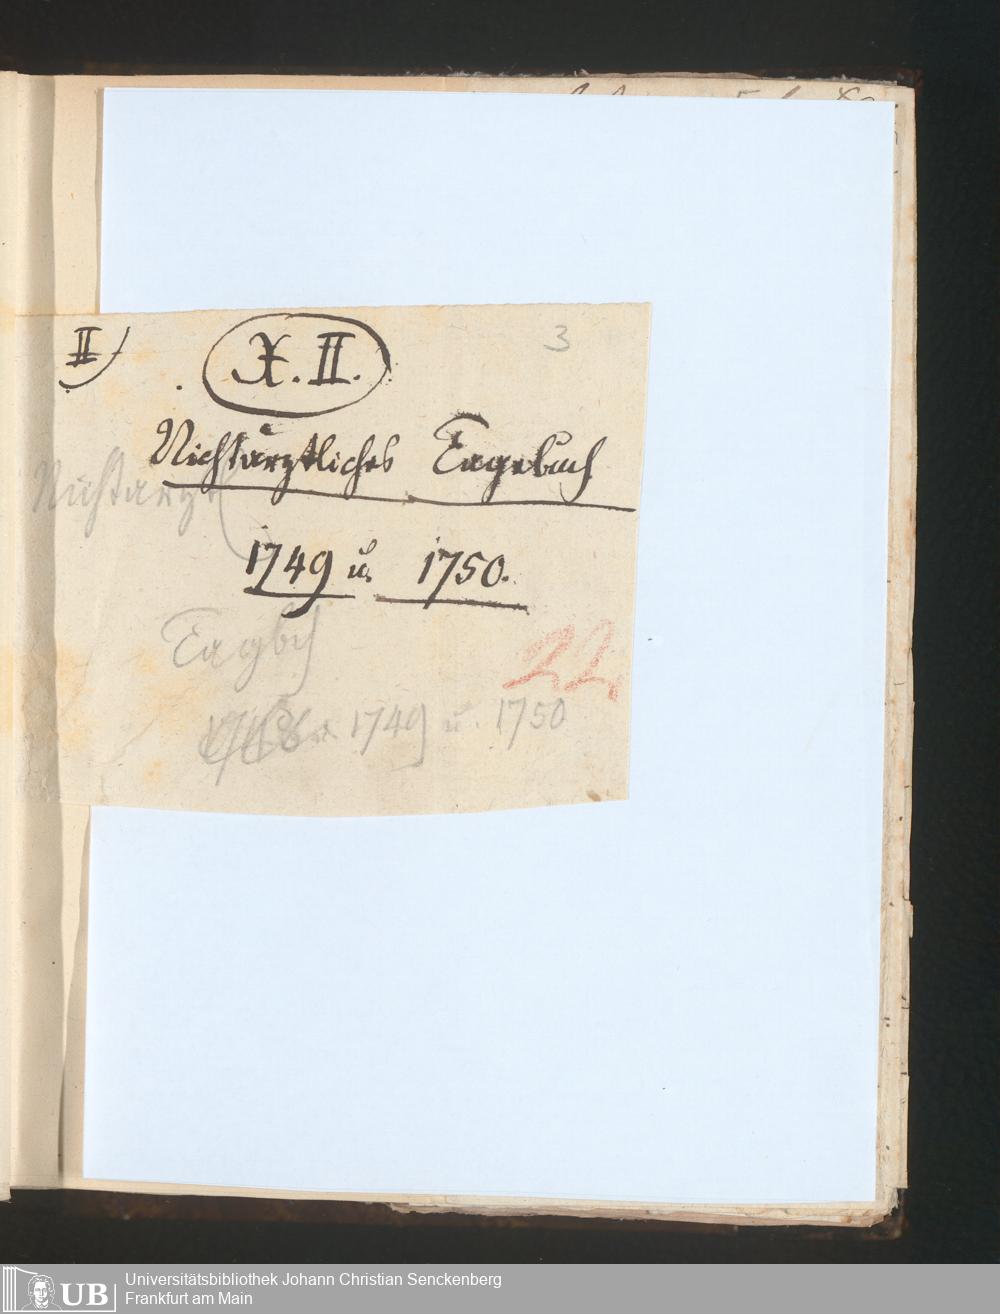 II)
X. II.
3
Nichtärztliches Tagebuch
Nichtärztl
1749 u. 1750.
Tagbch
22
1749 u. 1750
UB
Universitätsbibliothek Johann Christian Senckenberg
Frankfurt am Main